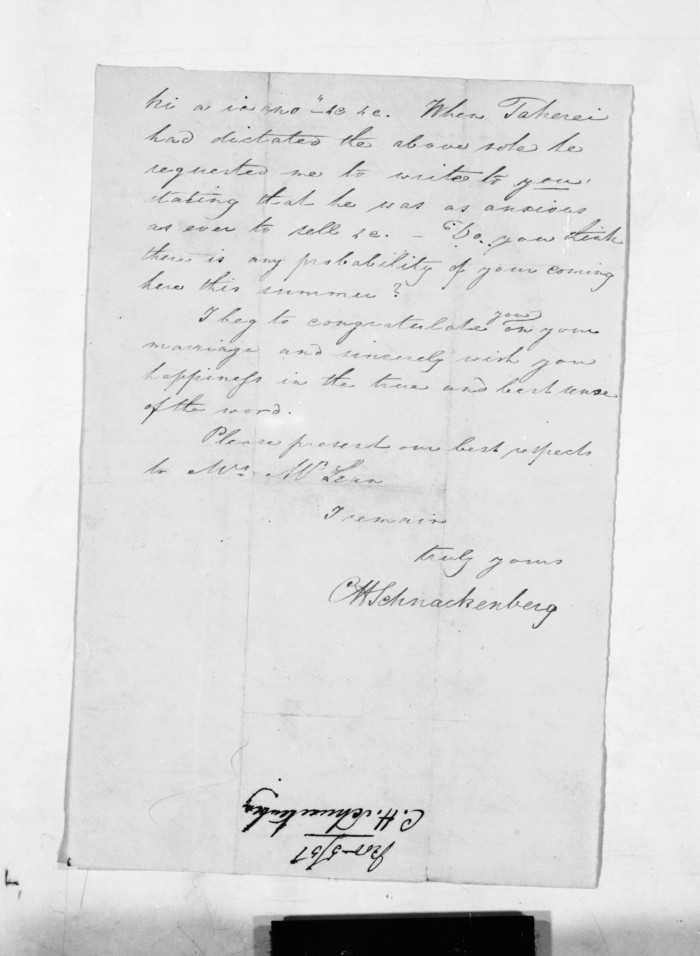 hia a ia ano" &c &c. When Taherei
had dictated the above note he
requested me to write to you
stating that he was as anxious
as ever to sell &c. — Do you think
there is any probability of your coming
here this summer?
I beg to congratulate you on your
marriage and sincerely wish you
happiness in the true and best sense
of the word.
Please present our best respects
to Mrs. McLean
I remain
truly yours
CHSchnackenberg
C. H. Schnackenberg
Nov 5/51